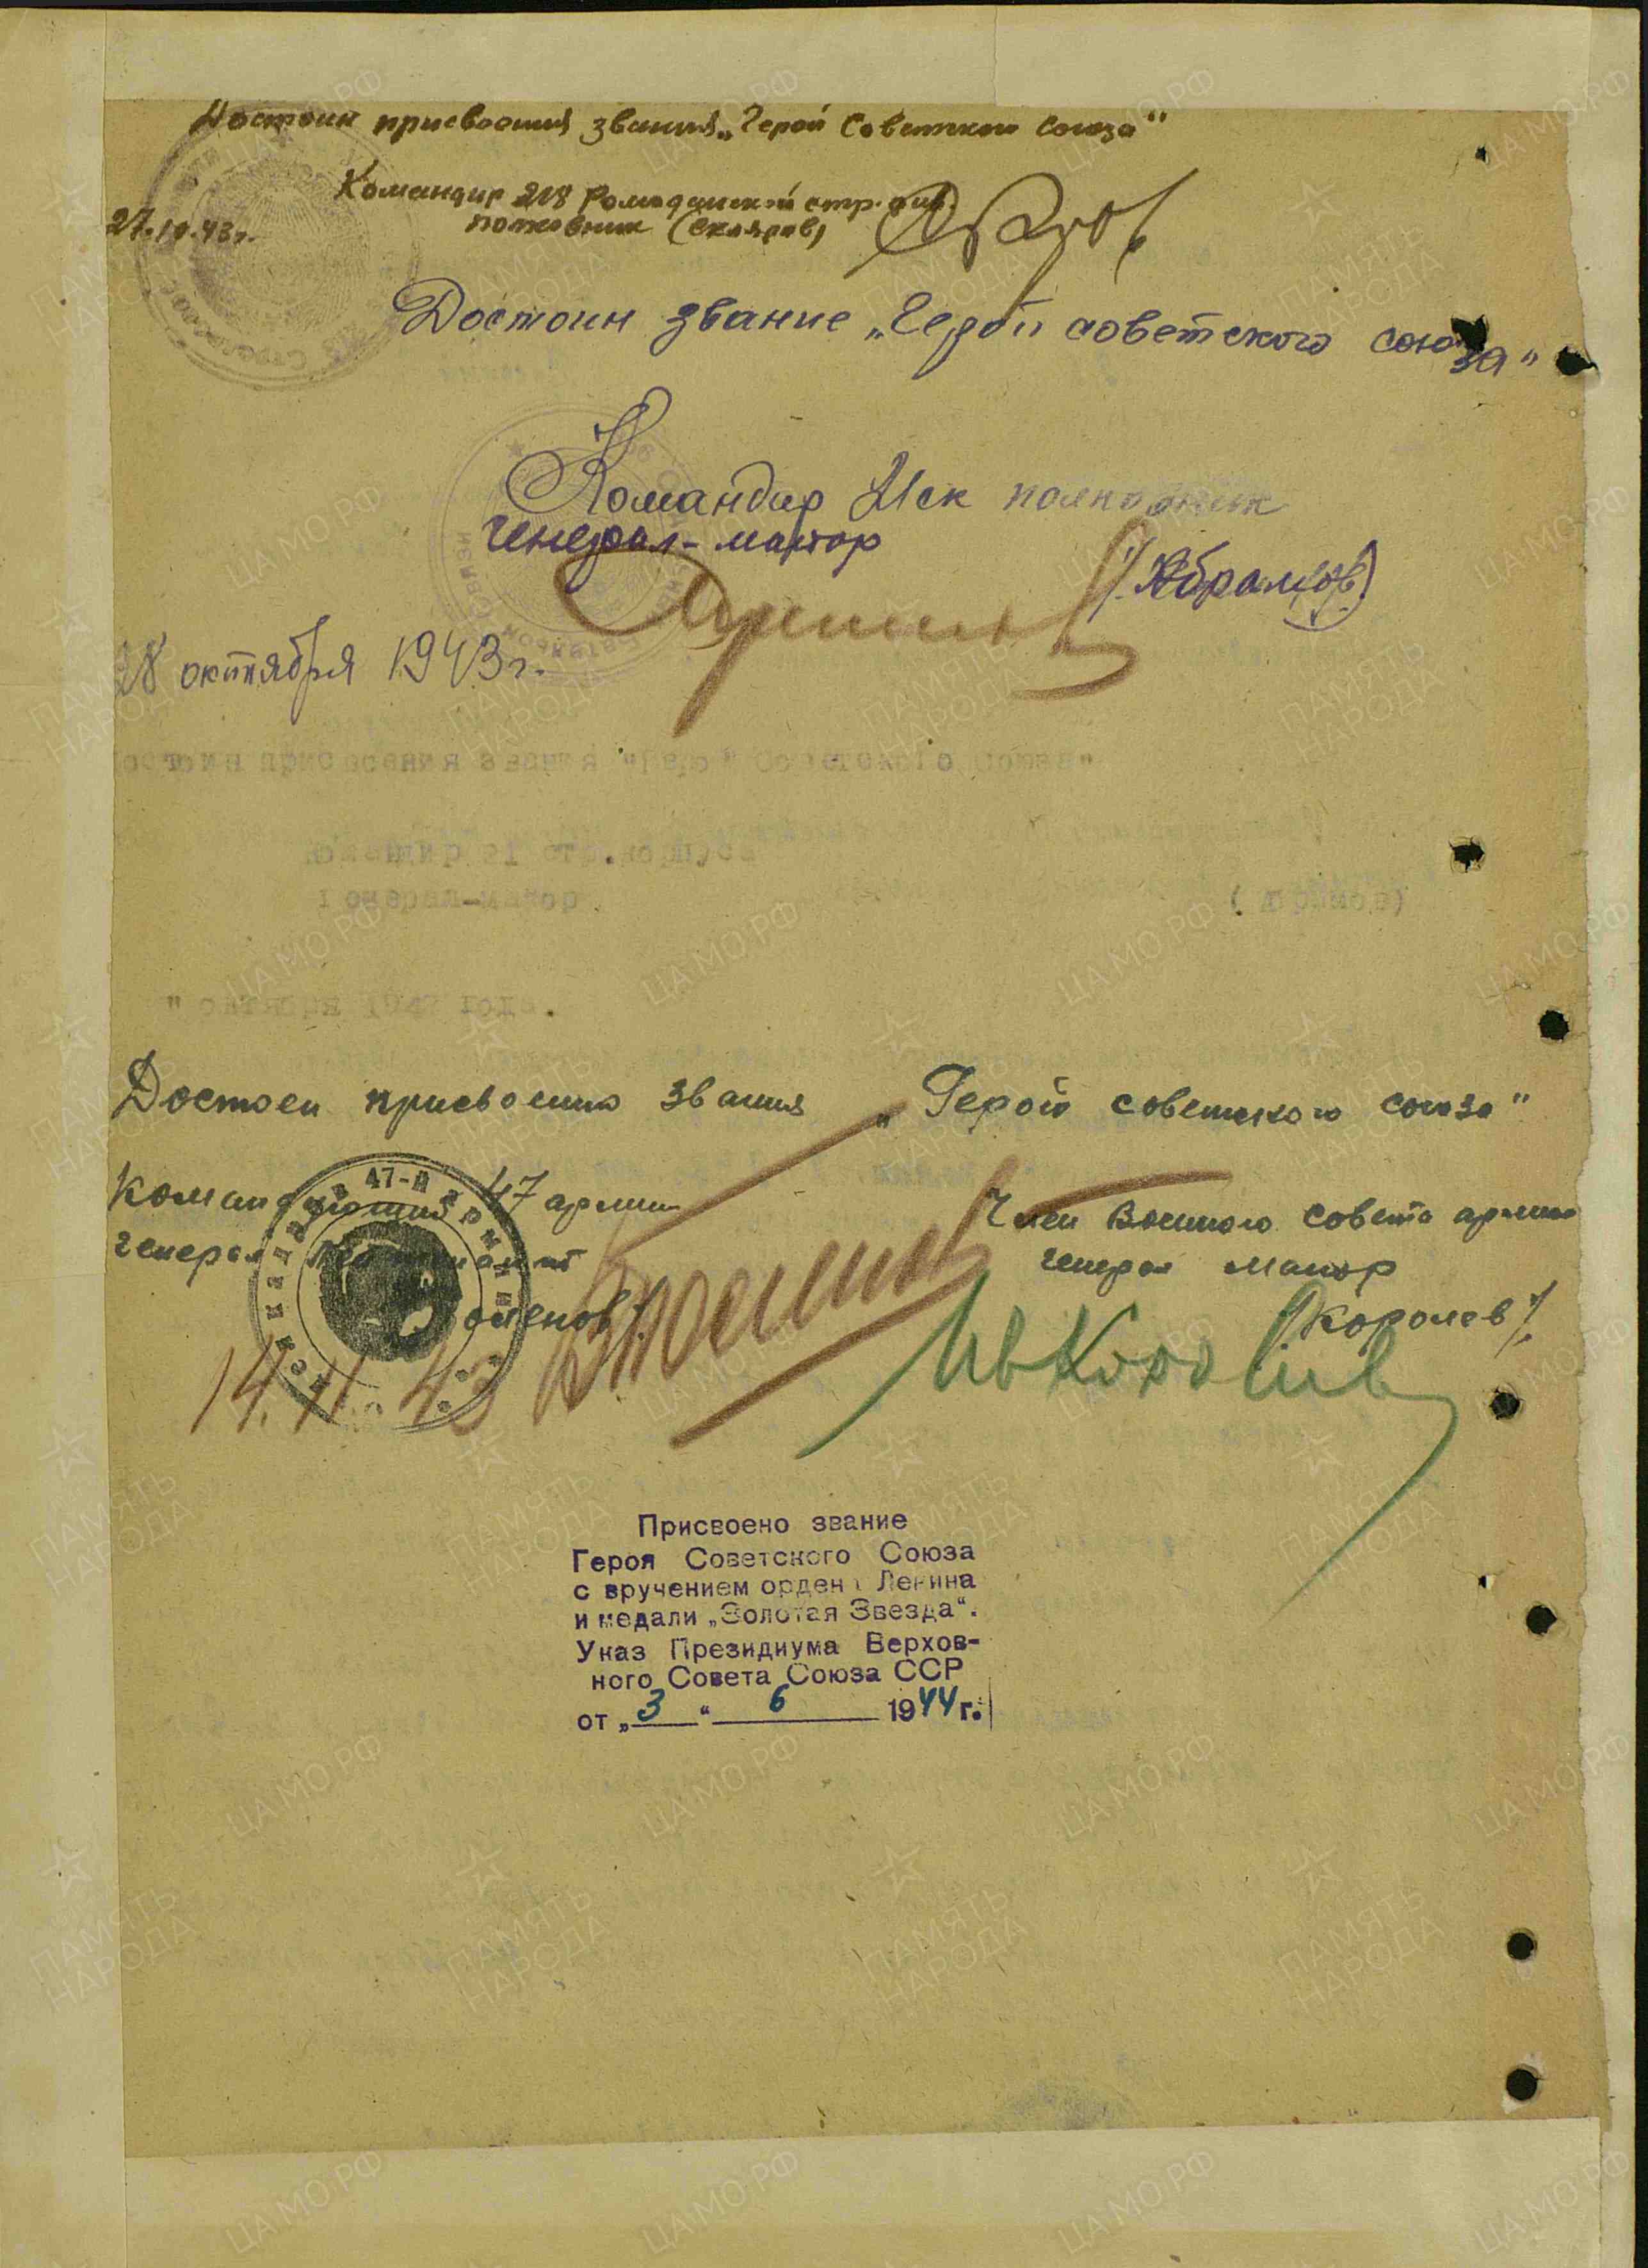 Достоин присвоения звания „Герой Советского Союза“
Командир 218 Ромоданской стр. див.
27.10.43г. полковник (Скляров)
Достоин звание „Герой советского союза“
Командир полковник
Генерал-майор
(Абрамов)
28 октября 1943 г.
присвоения звания "Герой Советского Союза"
Командир 21 стр. корпуса
Генерал-майор
" октября 1943 года.
Достоен присвоению звания „Герой советского союза"
Командующий 47 армии Член Военного совета армии
генерал лейтенант генерал майор
/Королев/
14.11.43
47-й
Присвоено звание
Героя Советского Союза
с вручением ордена Ленина
и медали „Золотая Звезда“.
Указ Президиума Верхов-
ного Совета Союза ССР
от „3“ 6 1944 г.
ПАМЯТЬ НАРОДА
ЦА МО РФ